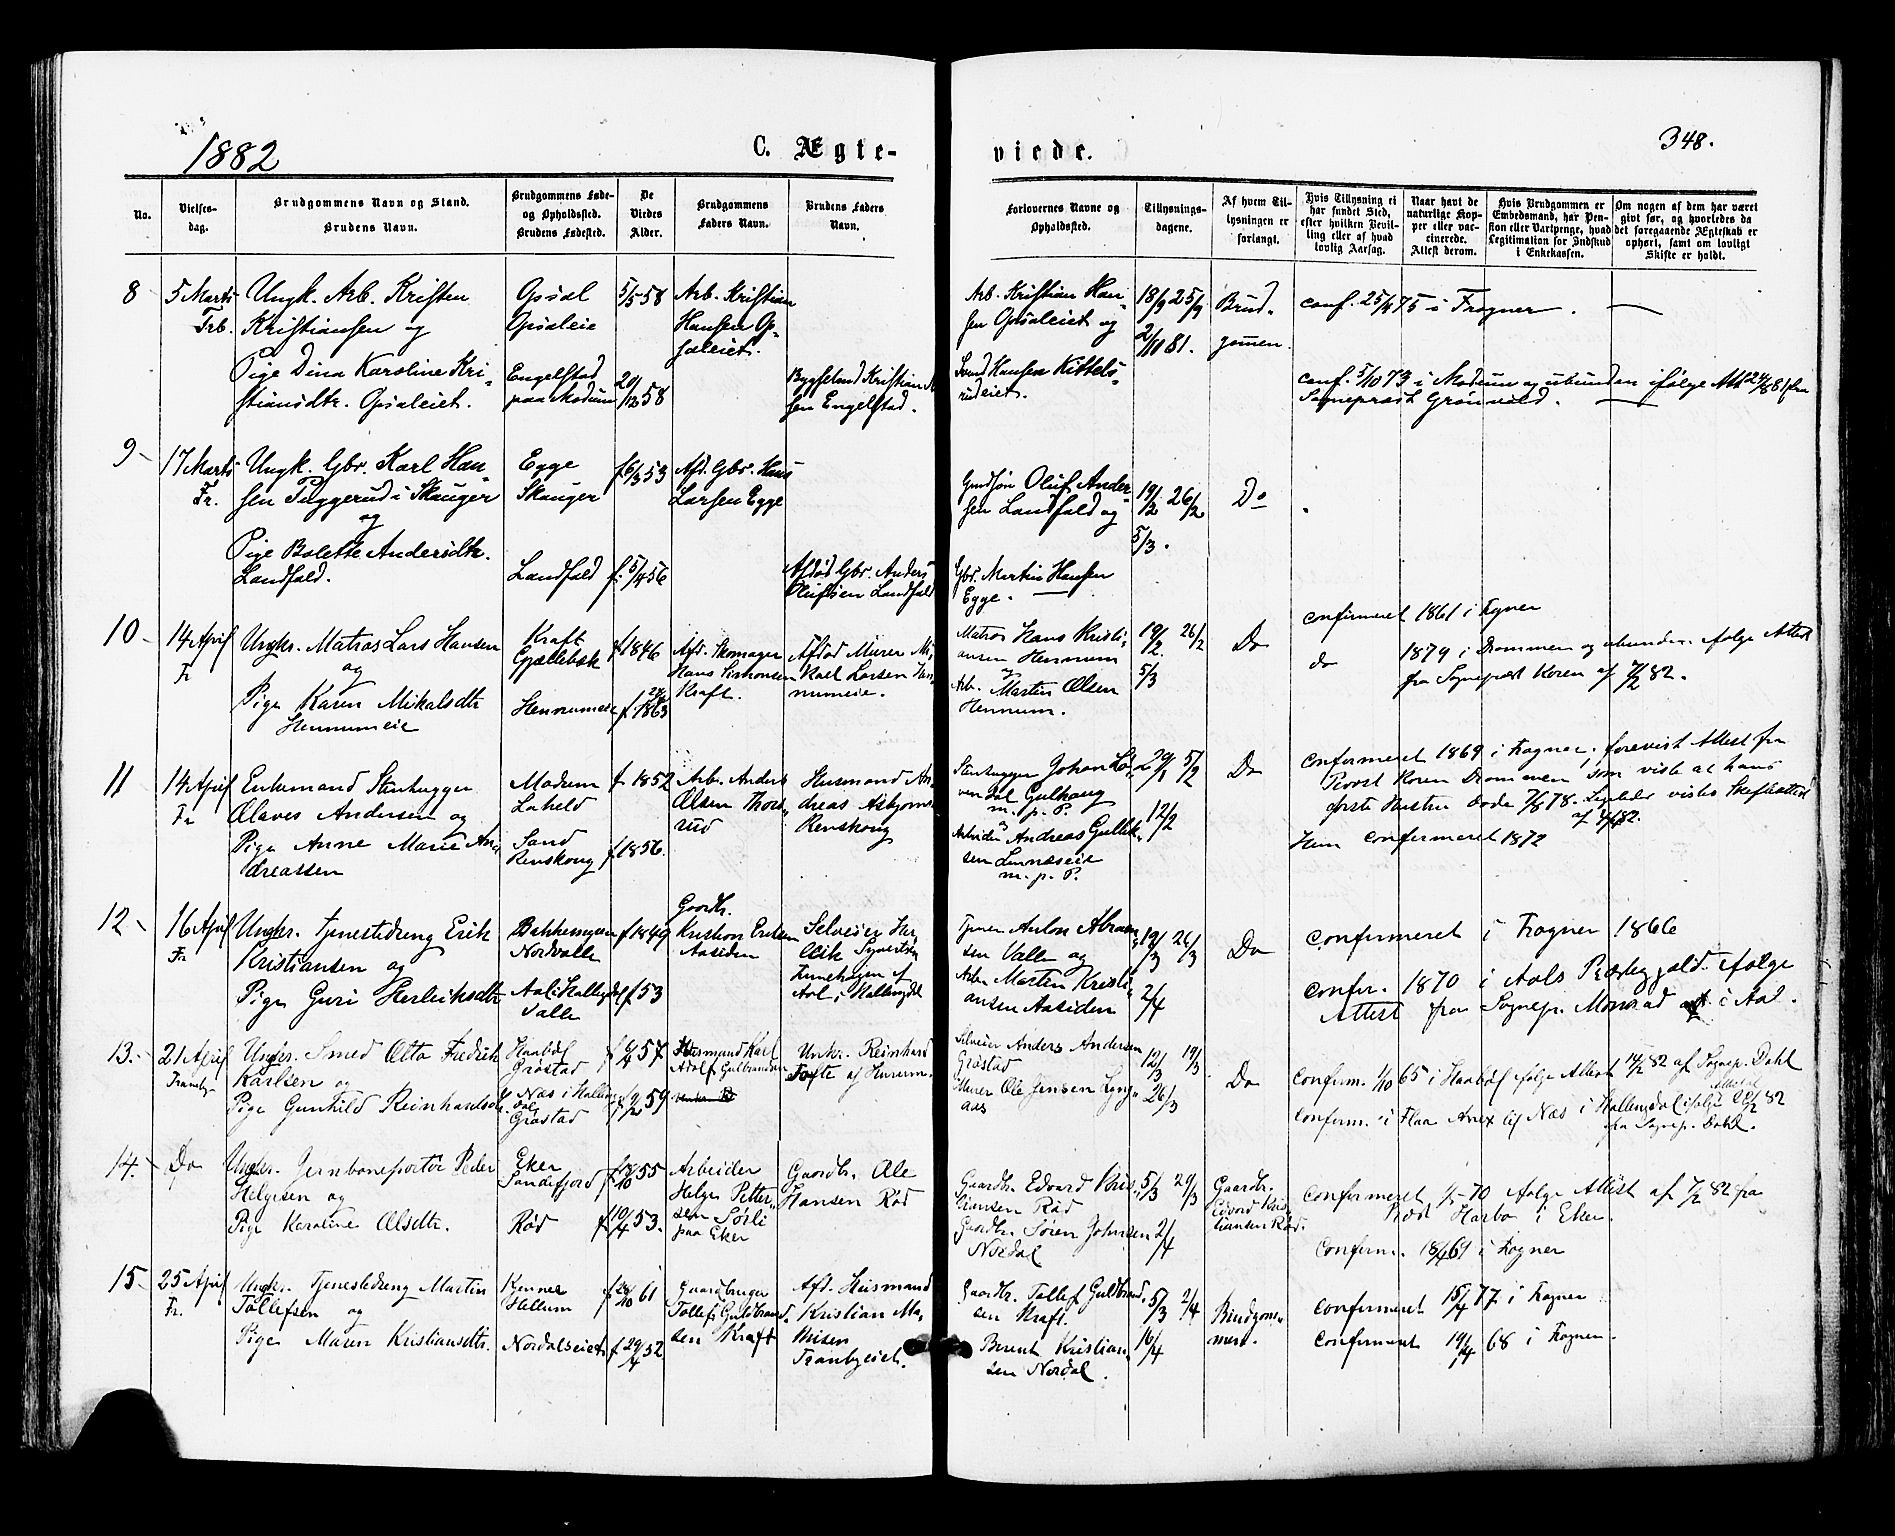 1882
C. Ægte-
viede.
348.
No.
Vielses-
dag.
Brudgommens Navn og Stand.
Brudens Navn.
Brudgommens Føde-
og Opholdssted.
Brudens Fødested.
De
Viedes
Alder.
Brudgommens
Faders Navn.
Brudens Faders
Navn.
Forlovernes Navne og
Opholdssted.
Tillysnings-
dagene.
Af hvem Til-
lysningen er
forlangt.
Hvis Tillysning ei
har fundet Sted,
efter hvilken Bevil-
ling eller af hvad
lovlig Aarsag.
Naar havt de
naturlige Kop-
per eller vac-
cinerede.
Attest derom.
Hvis Brudgommen er
Embedsmand, har Pen-
sion eller Vartpenge, hvad
Legitimation for Indskud
i Enkekassen.
Om nogen af dem har været
gift før, og hvorledes da
det foregaaende Ægteskab er
ophørt, samt om lovligt
Skifte er holdt.
8
5 Marts
Trb.
Ungk. Arb. Kristen
Kristiansen og
Pige Dina Karoline Kri-
stiansdtr. Opsaleiet.
Opsal
Opsaleie
Engelstad
paa Modum
5/5 58
20/12 58
Arb. Kristian
Hansen Op-
saleiet.
Bygselmd Kristian
sen Engelstad.
Arb. Kristian Han-
sen Opsaleiet og
Svend Hansen Kittels-
rudeiet.
18/9 25/9
2/10 81.
Brud-
gommen.
conf. 25/4 75 i Frogner. —
conf. 5/10 73 i Modum og ubunden ifølge Att. fra
Sogneprest Grönvold. —
9 -
17 Marts
Fr.
Ungk. Gbr. Karl Han-
sen Tuggerud i Skauger
og
Pige Bolette Andersdtr.
Landfald.
Egge
Skauger
Landfald
f 6/3 53
f. 5/4 56
Afd. Gbr. Hans
Larsen Egge
Afdød Gbr. Anders
Olufsen Landfald
Gmdsøn Oluf Ander-
sen Landfald og
Gbr. Martin Hansen
Egge. —
19/2 26/2
5/3.
Do
10 -
14 April
Fr
Ungkr. Matros Lars Hansen
og
Pige Karen Mikalsdtr
Hennumeie
Kraft
Gjellebæk
Hennumeie
f 1846
f 1863
Afd. Skomager
Hans Simonsen
Kraft.
Afdød Murer Mi-
kael Larsen Hen-
numeie.
Matros Hans Kristi-
ansen Hennum
og
Arb. Martin Olsen
Hennum.
19/2. 26/2
5/3
Do
confirmeret 1861 i Frogner
do 1879 i Drammen og ubunden ifølge Attest
fra Sogneprest Koren af 7/2 82.
11
14 April
Fr
Enkemand Stenhugger
Olaves Andersen og
Pige Anne Marie An-
dreassen
Modum
Laheld
Sand
Renskoug
f 1852
f 1856.
Arb. Anders
Olsen Thors-
rud
Husmand An-
dreas Asbjørns
Renskoug
Stenhugger Johan
Gulhaug
m. p. P.
og
Arbeider Andreas Gullik-
sen Linnæseie
m. p. P.
29/1 5/2
12/2
Do
Confirmeret 1869 i Frogner, forevist Attest fra
Provst Koren Drammen, som viste at hans
første Hustru døde 7/8 78. Ligeledes vistes Skifteattest
af 4/4 82.
Hun confirmeret 1872
12 -
16 April
Fr
Ungkr. Tjenestedreng Erik
Kristiansen og
Pige Guri Herleiksdtr
Bakkemyren
Nordvalle
Aal i Hallingdal
Valle
f 1849
f 53
Gaardbr.
Kristian Eriksen
Aasiden
Selveier Her-
leik Syvertsen
Tunehagen af
Aal i Hallingdal
Tjener Anton Abram-
sen Valle og
Arb. Martin Kristi-
ansen Aasiden
19/3 26/3
2/4
Do
Confirmeret i Frogner 1866
confir. 1870 i Aals Prestegjeld. ifølge
Attest fra Sognepr. Monrad i Aal.
13.-
21 April
Tranby
Ungkr. Smed Otto Fredrik
Karlsen og
Pige Gunhild Reinhardsdtr.
Haabøl
Grøstad
Næs i Halling-
dal
Grøstad
57
59
Husmand Karl
Adolf Gulbrandsen
Unkr. Reinhard
af Hurum.
Selveier Anders Andersen
Grøstad
Murer Ole Jensen Lyng-
aas
12/3 19/3
26/3
Do
Confirm. 1/10 65 i Haabøl ifølge Attest 14/2 82 af Sognepr. Dahl
Confirm. i Flaa Anex til Næs i Hallingdal ifølge Attest 82
fra Sognepr. Dahl.
14. -
Do
Ungkr. Jernbaneportør Peder
Helgesen og
Pige Karoline Olsdtr.
Eker
Sandefjord
Rød
f 18/10 55
f 10/4 53.
Arbeider
Helge Petter-
sen Sørli
paa Eker
Gaardbr. Ole
Hansen Rød
Gaardbr. Edvard Kris-
tiansen Rød
Gaardbr. Søren Johnsen
Nordal
5/3 29/3
2/4
Gaardbr.
Edvard Kris-
tiansen Rød.
Confirmeret 1/5 70 ifølge Attest af 7/2 82 fra
Præst Harbo i Eker.
Confirm. 18/4 69 i Frogner
15 -
25 April
Fr.
Ungkr. Tjenestedreng Martin
Tollefsen og
Pige Maren Kristiansdtr.
Kjenner
Hellum
Nordalseiet
f 28/10 61
f 29/4 52.
Gaardbruger
Tollef Guldbrand-
sen Kraft
Afd. Husmand
Kristian Ma-
thisen
Tranbyeiet.
Gaardbr. Tollef Guldbrand-
sen Kraft.
Bernt Kristian-
sen Nordal.
5/3 2/4
16/4
Brudgom-
men.
Confirmeret 15/4 77 i Frogner
Confirmeret 19/4 68 i Frogner